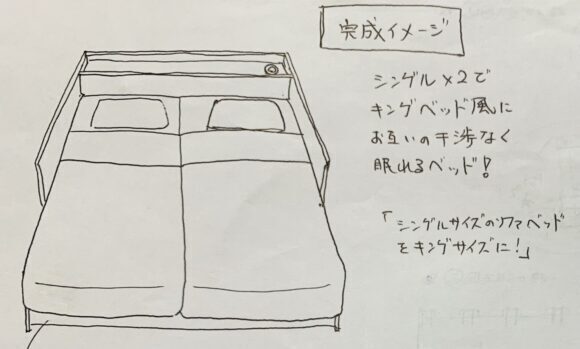 完成イメージ
シングル×2で
キングベッド風に
お互いの干渉なく
眠れるベッド!
「シングルサイズのソファベッド
をキングサイズに!」